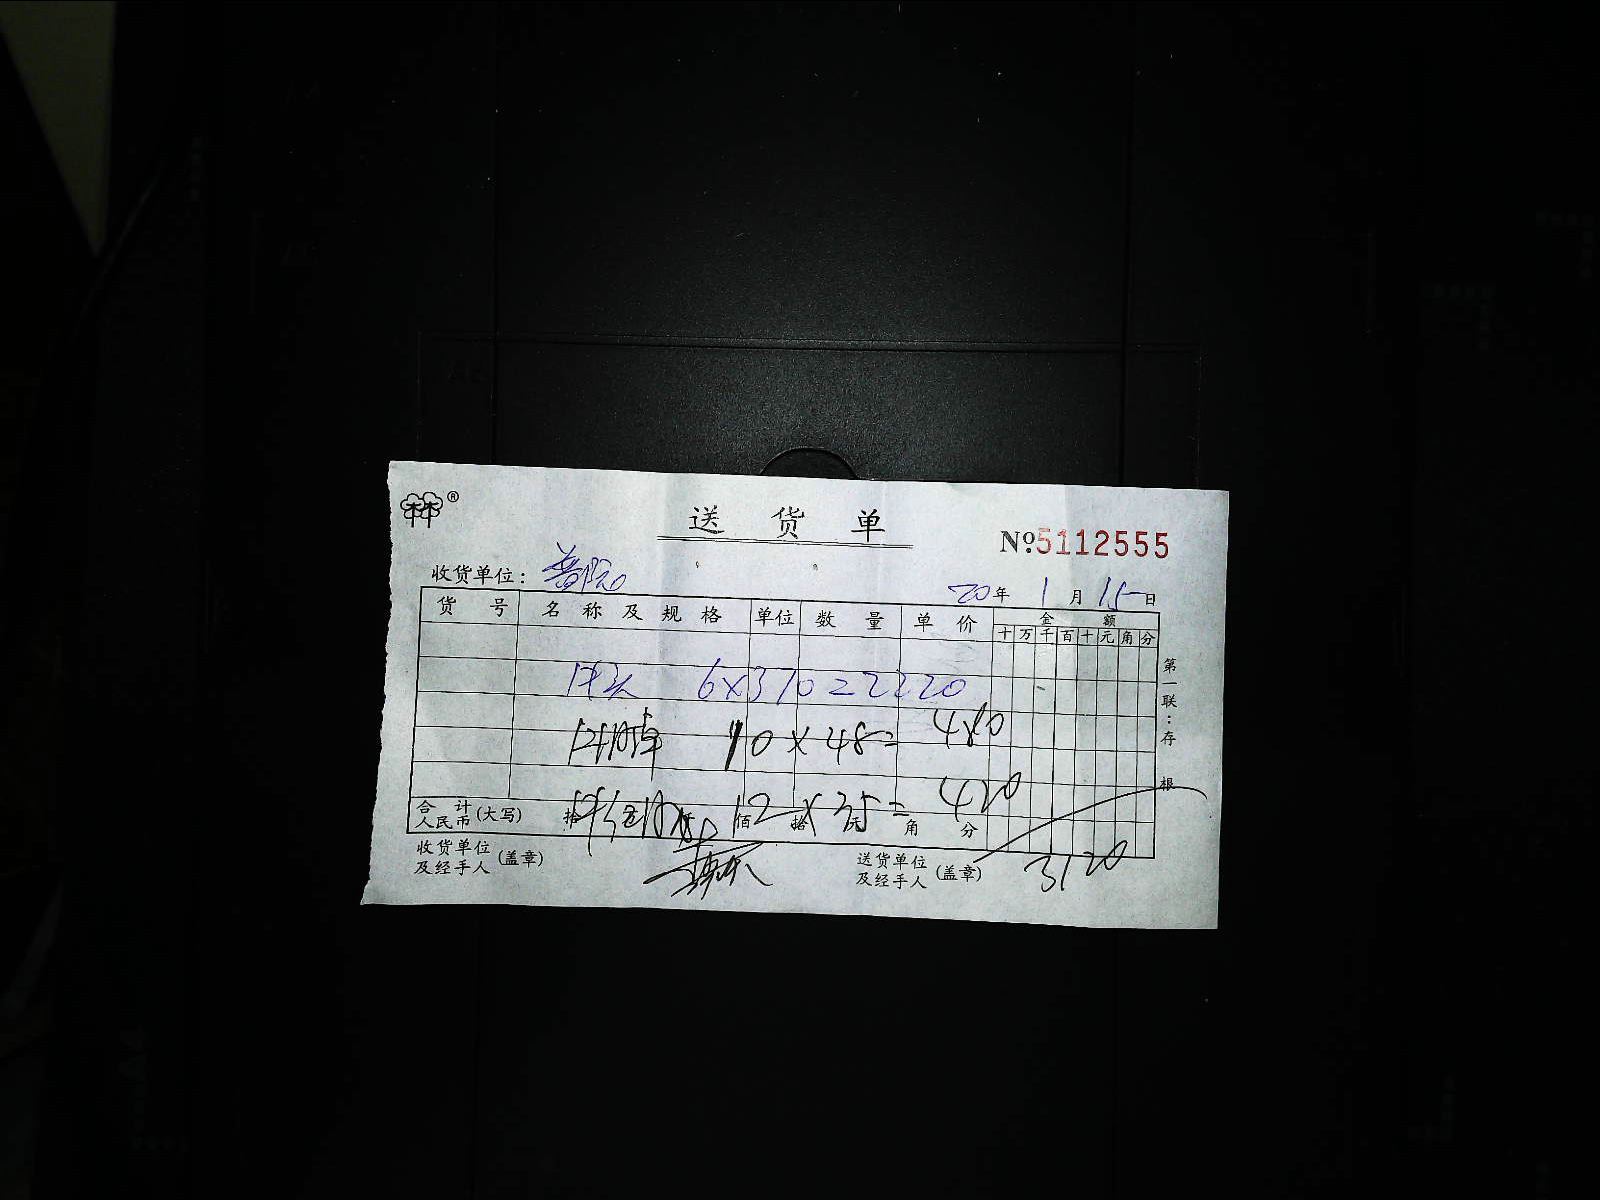 ®
送货单
№5112555
收货单位:普院
20年1月15日
货号 名称及规格 单位 数量 单价 金额
十万千百十元角分
6×370=2220
10×48=480
12×35=420
合计人民币(大写) 拾 仟 佰 拾 元 角 分
收货单位及经手人(盖章) 送货单位及经手人(盖章) 3120
第一联:存根